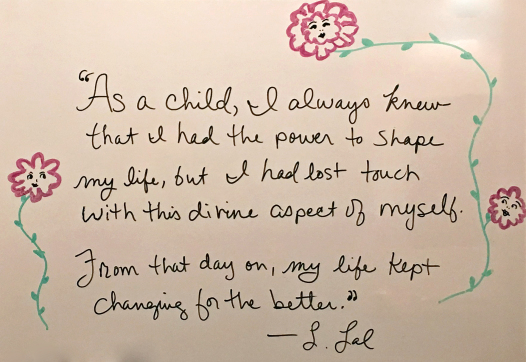 "As a child, I always knew
that I had the power to shape
my life, but I had lost touch
with this divine aspect of myself.
From that day on, my life kept
changing for the better."
— L. Lal